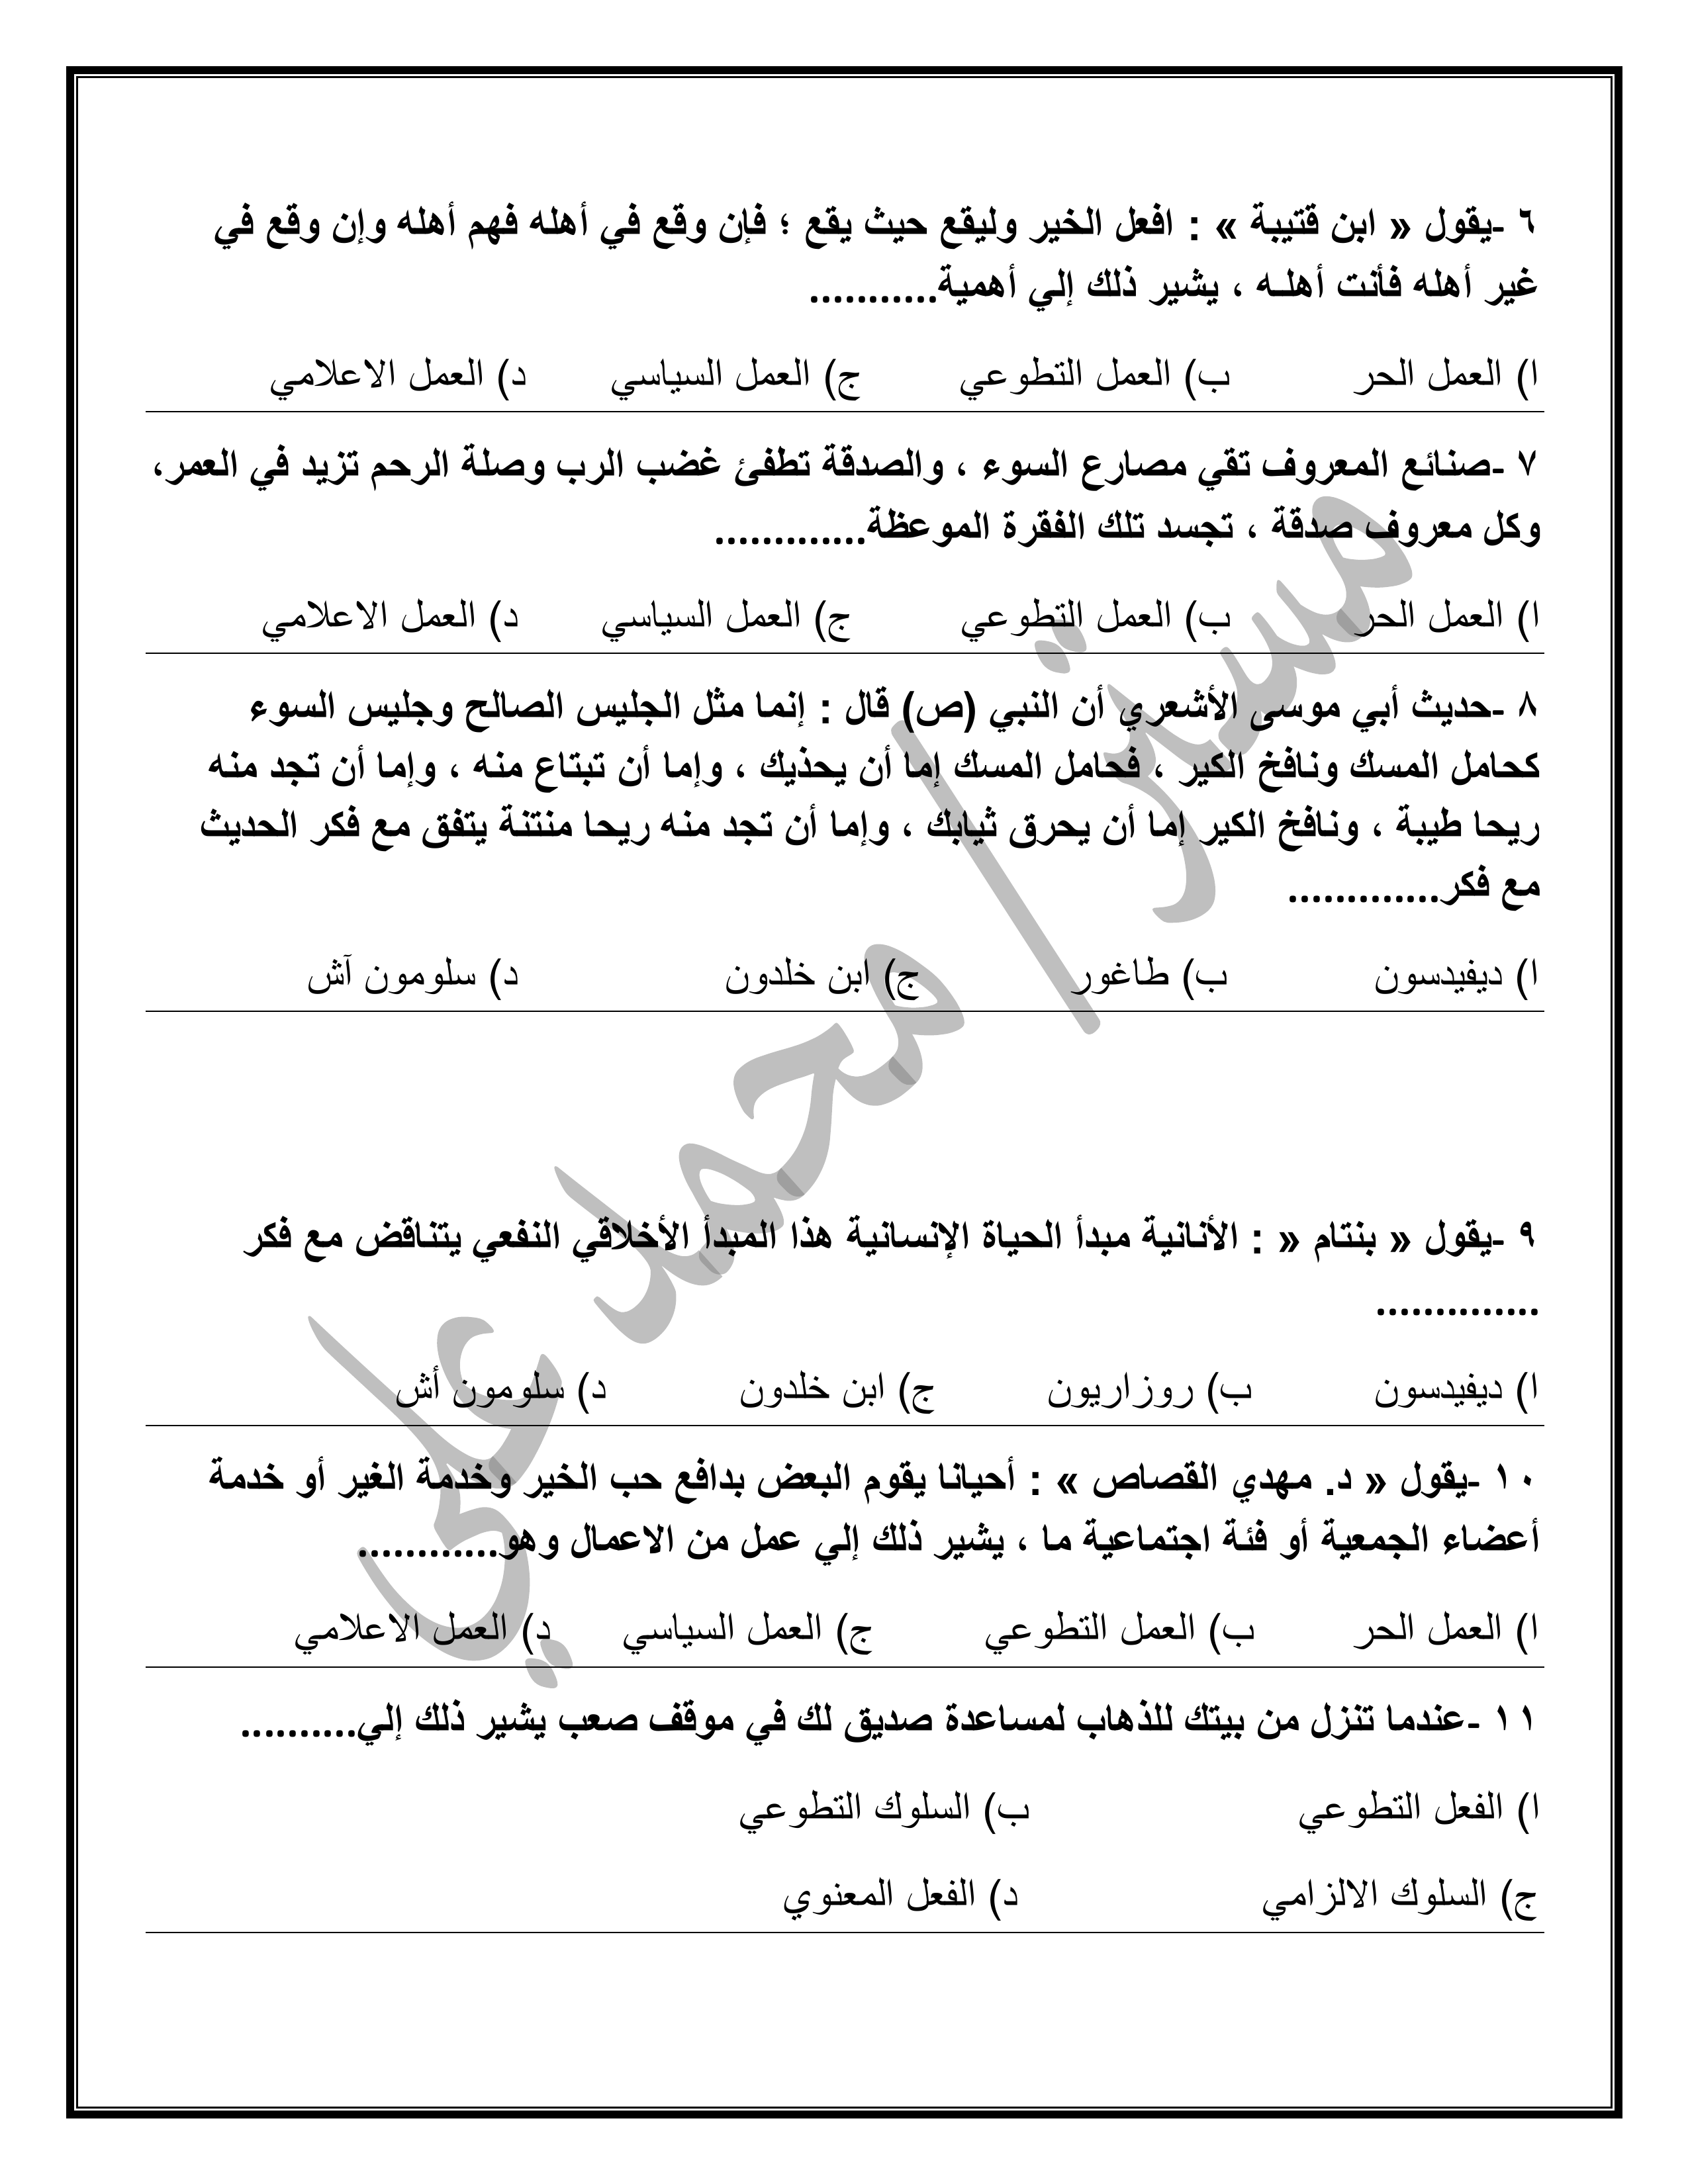 ٦ -يقول « ابن قتيبة » : افعل الخير وليقع حيث يقع ؛ فإن وقع في أهله فهم أهله وإن وقع في
غير أهله فأنت أهلـه ، يشير ذلك إلي أهمية...........
ا) العمل الحر ب) العمل التطوعي ج) العمل السياسي د) العمل الاعلامي
٧ -صنائع المعروف تقي مصارع السوء ، والصدقة تطفئ غضب الرب وصلة الرحم تزيد في العمر،
وكل معروف صدقة ، تجسد تلك الفقرة الموعظة.............
ا) العمل الحر ب) العمل التطوعي ج) العمل السياسي د) العمل الاعلامي
٨ -حديث أبي موسى الأشعري أن النبي (ص) قال : إنما مثل الجليس الصالح وجليس السوء
كحامل المسك ونافخ الكير ، فحامل المسك إما أن يحذيك ، وإما أن تبتاع منه ، وإما أن تجد منه
ريحا طيبة ، ونافخ الكير إما أن يحرق ثيابك ، وإما أن تجد منه ريحا منتنة يتفق مع فكر الحديث
مع فكر.............
ا) ديفيدسون ب) طاغور ج) ابن خلدون د) سلومون آش
٩ -يقول « بنتام « : الأنانية مبدأ الحياة الإنسانية هذا المبدأ الأخلاقي النفعي يتناقض مع فكر
..............
ا) ديفيدسون ب) روزاريون ج) ابن خلدون د) سلومون أش
١٠ -يقول « د. مهدي القصاص » : أحيانا يقوم البعض بدافع حب الخير وخدمة الغير أو خدمة
أعضاء الجمعية أو فئة اجتماعية ما ، يشير ذلك إلي عمل من الاعمال وهو............
ا) العمل الحر ب) العمل التطوعي ج) العمل السياسي د) العمل الاعلامي
١١ -عندما تنزل من بيتك للذهاب لمساعدة صديق لك في موقف صعب يشير ذلك إلي..........
ا) الفعل التطوعي ب) السلوك التطوعي
ج) السلوك الالزامي د) الفعل المعنوي
مستر/محمد علي